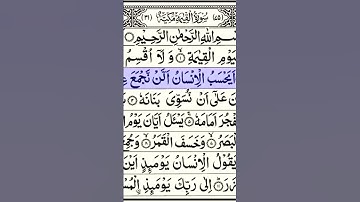 سُوْرَةُ الْقِيٰمَةِ مَكِّيَّةٌ (٣١)
سْمِ اللّٰهِ الرَّحْمٰنِ الرَّحِيْمِ
يَوْمِ الْقِيٰمَةِ ۝١ وَلَاۤ اُقْسِمُ
اَيَحْسَبُ الْاِنْسَانُ اَلَّنْ نَّجْمَعَ
عَلٰۤى اَنْ نُّسَوِّيَ بَنَانَهٗ ۝٤
فْجُرَ اَمَامَهٗ ۝٥ يَسْـَٔلُ اَيَّانَ يَوْمُ
الْبَصَرُ ۝٧ وَخَسَفَ الْقَمَرُ ۝٨ وَجُمِعَ
يَقُوْلُ الْاِنْسَانُ يَوْمَىِٕذٍ اَيْنَ
زَرَ ۝١١ اِلٰى رَبِّكَ يَوْمَىِٕذِ الْمُسْ